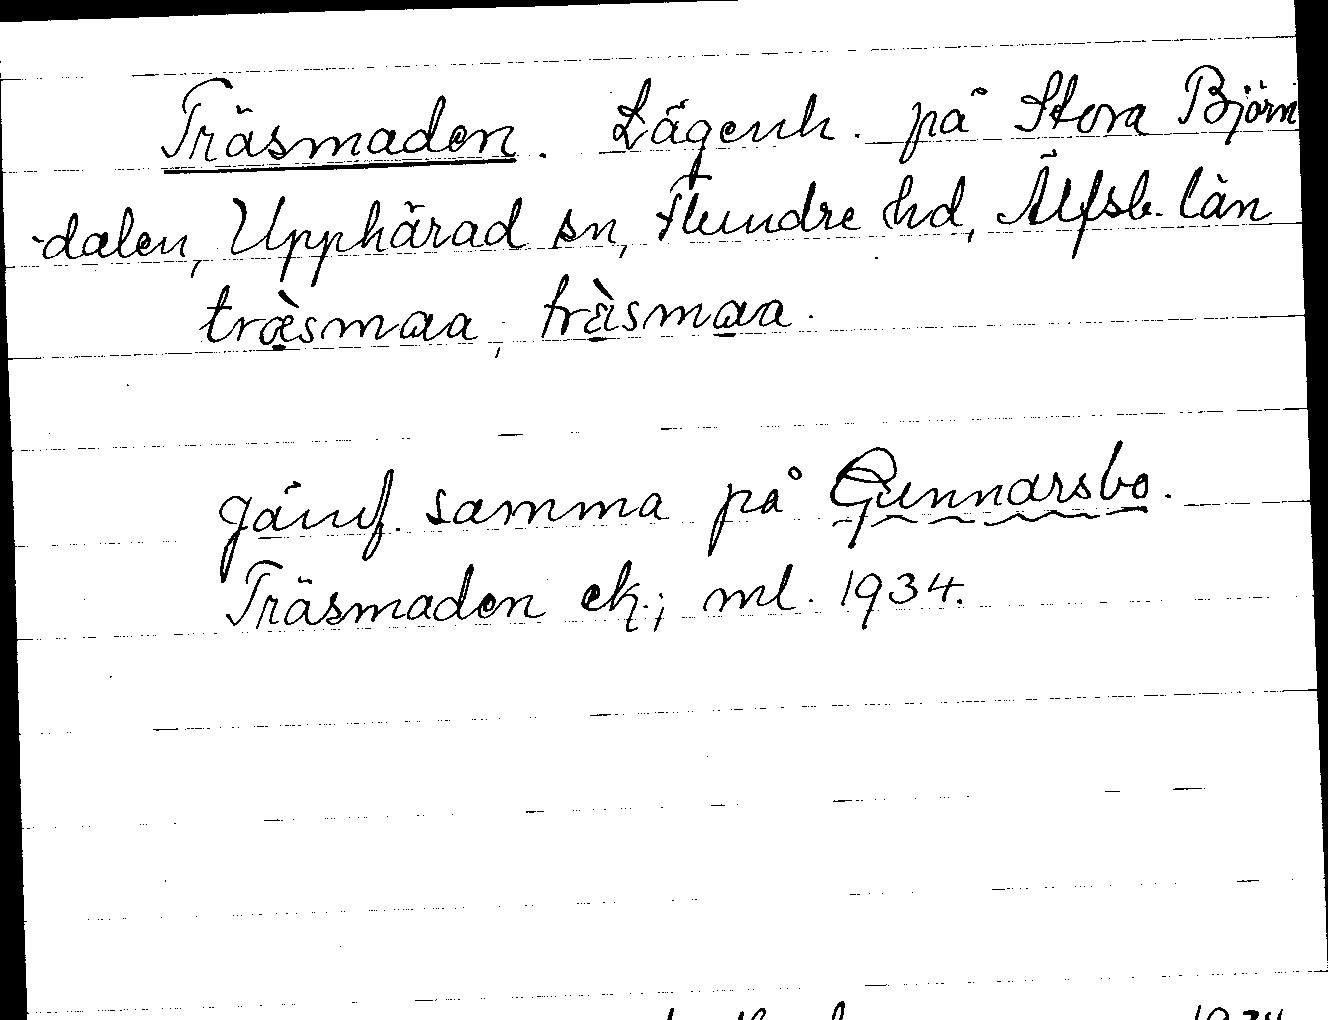 Träsmaden. Lägenh. på Stora Björn
-dalen, Upphärad sn, Flundre hd, Älfsb. län
træ̀smaa, trä̀smaa.
jämf. samma på Gunnarsbo.
Träsmaden ek.; ml. 1934.
1934